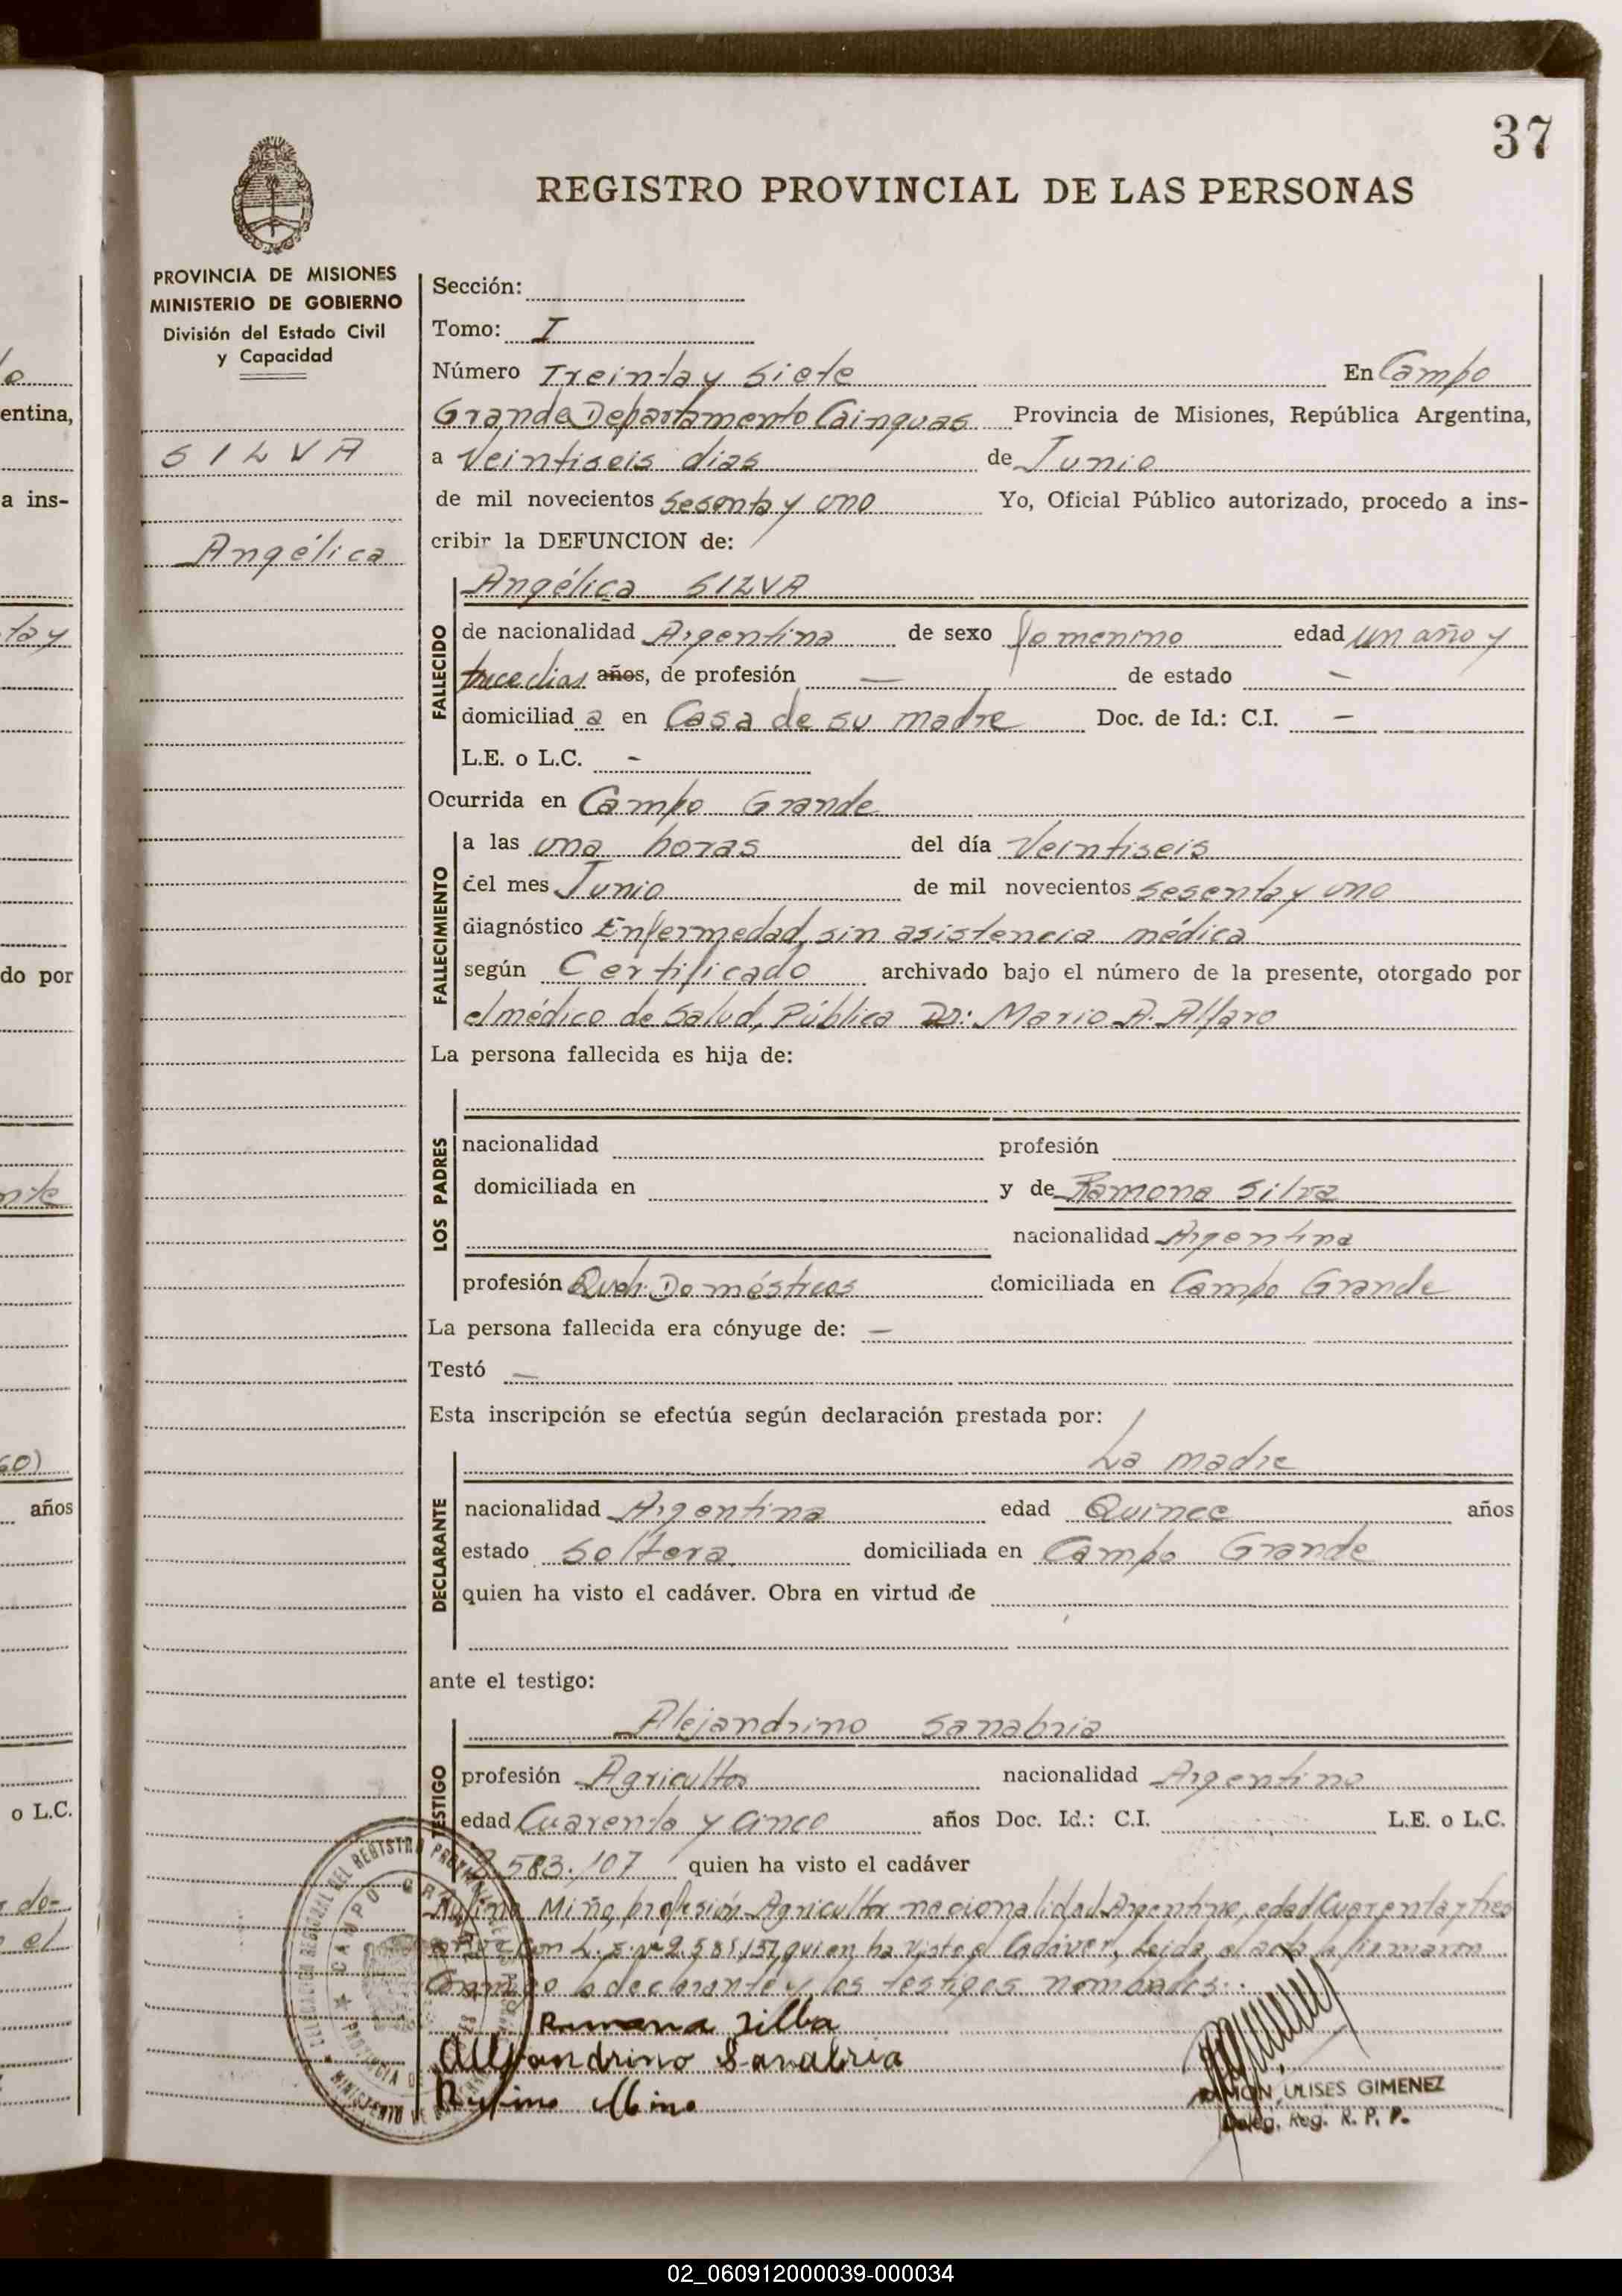 37
REGISTRO PROVINCIAL DE LAS PERSONAS
PROVINCIA DE MISIONES
MINISTERIO DE GOBIERNO
División del Estado Civil
y Capacidad
SILVA
Angélica
Sección:
Tomo: I
Número Treinta y Siete En Campo
Grande Departamento Cainguas Provincia de Misiones, República Argentina,
a Veintiseis dias de Junio
de mil novecientos Sesenta y uno Yo, Oficial Público autorizado, procedo a ins-
cribir la DEFUNCION de:
Angélica SILVA
FALLECIDO
de nacionalidad Argentina de sexo femenino edad un año y
trece dias años, de profesión — de estado —
domiciliad a en Casa de su madre Doc. de Id.: C.I. —
L.E. o L.C. -
Ocurrida en Campo Grande
FALLECIMIENTO
a las una horas del día Veintiseis
del mes Junio de mil novecientos sesenta y uno
diagnóstico Enfermedad, sin asistencia médica
según Certificado archivado bajo el número de la presente, otorgado por
el médico de Salud, Pública Dr: Mario A. Alfaro
La persona fallecida es hija de:
LOS PADRES
nacionalidad profesión
domiciliada en y de Ramona Silva
nacionalidad Argentina
profesión Queh: Domésticos domiciliada en Campo Grande
La persona fallecida era cónyuge de: —
Testó —
Esta inscripción se efectúa según declaración prestada por:
La madre
DECLARANTE
nacionalidad Argentina edad Quince años
estado Soltera domiciliada en Campo Grande
quien ha visto el cadáver. Obra en virtud de
ante el testigo:
Alejandrino Sanabria
TESTIGO
profesión Agricultor nacionalidad Argentino
edad Cuarenta y Cinco años Doc. Id.: C.I. L.E. o L.C.
583.107 quien ha visto el cadáver
Rufino Miño, profesión Agricultor nacionalidad Argentino, edad Cuarenta y tres
con L.E. Nº 2.581.157, quien ha visto el Cadáver, Leida el acta, la firmaron
Conmigo la declarante y los testigos nombrados:.
Ramona Silba
Alejandrino Sanabria
Rufino Mino
RAMON ULISES GIMENEZ
Deleg. Reg. R. P. P.
CAMPO GRANDE
o
entina,
a ins-
tay
do por
nte
60)
años
o L.C.
de-
el
02_060912000039-000034